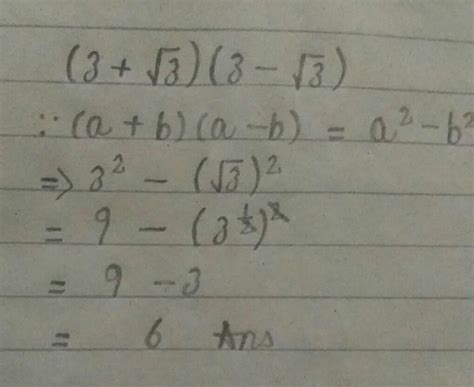 (3 + √3)(3 - √3)
∵ (a + b)(a - b) = a² - b²
⇒ 3² - (√3)²
= 9 - (3^(1/2))²
= 9 - 3
= 6 Ans